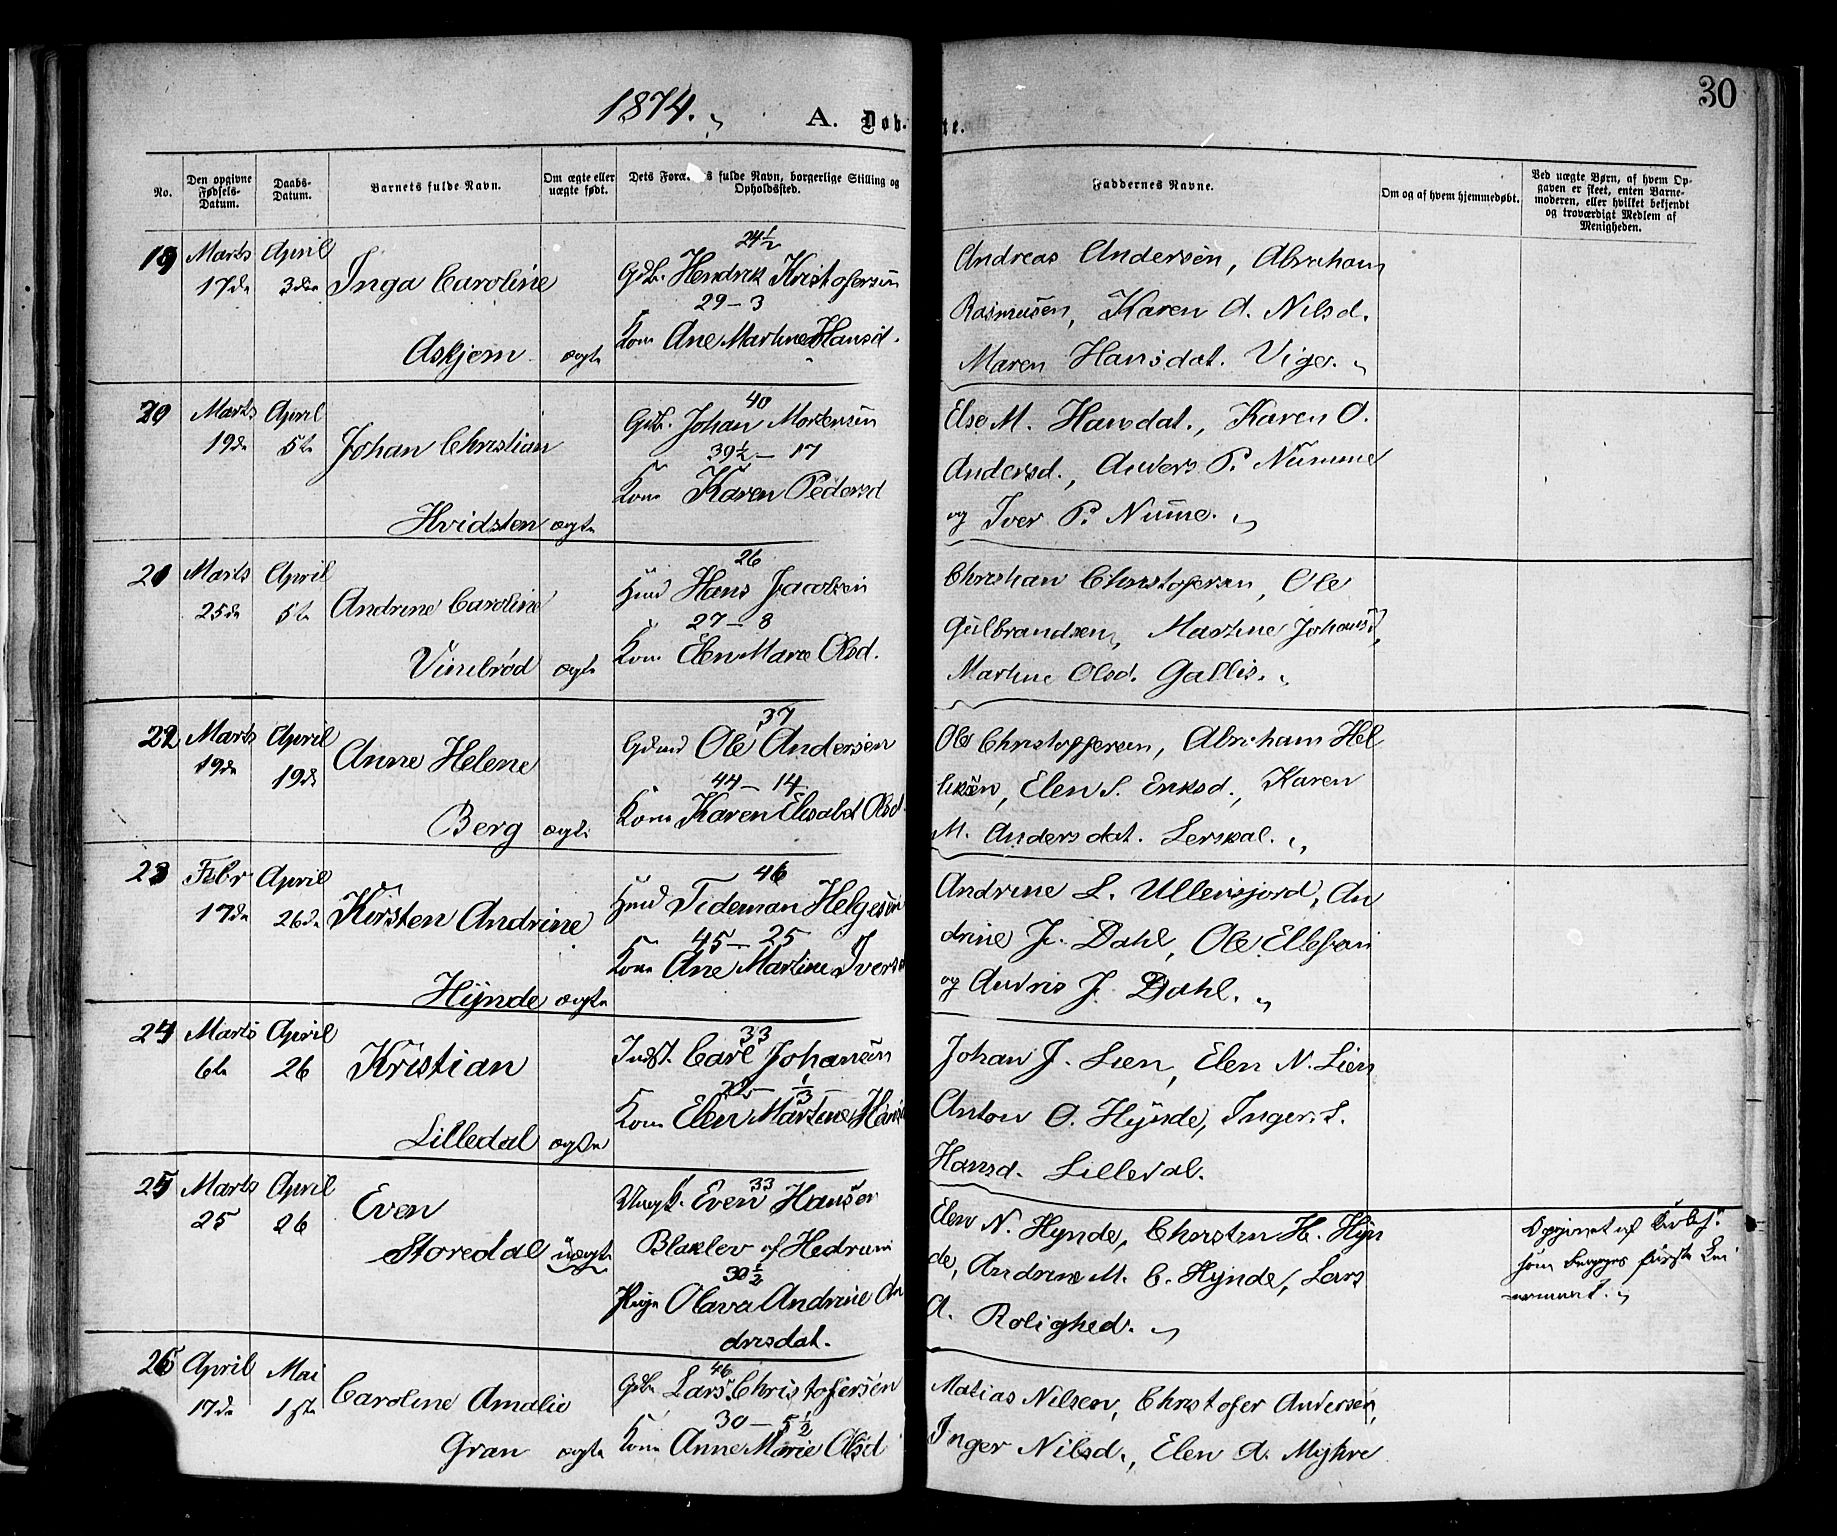 30
1874.
A. Døb- te.
No.
Den opgivne Fødsels-Datum.
Daabs-Datum.
Barnets fulde Navn.
Om ægte eller uægte født.
Dets Foræ s fulde Navn, borgerlige Stilling og Opholdssted.
Faddernes Navne.
Om og af hvem hjemmedøbt.
Ved uægte Børn, af hvem Opgaven er skeet, enten Barnemoderen, eller hvilket bekjendt og troværdigt Medlem af Menigheden.
19 Marts April 24½
17de 3die Inga Caroline Gdb. Hendrik Kristofersen
29 – 3
Askjem ægte Kone Ane Martine Hansd.
Andreas Andersen, Abraham
Rasmusen, Karen A. Nilsd.
Maren Hansdat. Viger.
20 Marts April 40
19de 5te Johan Christian Gdb. Johan Mortensen
39½ – 17
Kone Karen Pedersd
Hvidsten ægte
Else M. Hansdat., Karen O.
Andersd., Anders P. Numme
og Iver P. Numme.
21 Marts April 26
25de 5te Andrine Caroline Hmd Hans Jacobsen
27 – 8
Vimbrød ægte Kone Elen Marie Olsd.
Christian Christofersen, Ole
Gulbrandsen, Martine Johansd,
Martine Olsd. Gallis.
22 Marts April 37
19de 19de Anne Helene Gdmd Ole Andersen
44 – 14
Berg ægte Kone Karen Elisabet Olsd
Ole Christoffersen, Abraham Hel
liksen, Elen S. Eriksd., Karen
M. Andersdat. Lerskal.
23 Febr April 46
17de 26de Kirsten Andrine Hmd Tideman Helgesen
45 – 25
Kone Ane Martine Iversd
Hynde ægte
Andrine L. Ullensjord, An
drine J. Dahl, Ole Ellefsen
og Andris J. Dahl.
24 Marts April 33
6te 26 Kristian Indst. Carl Johansen
Lilledal ægte Kone Elen Martine Hans
Johan J. Lien, Elen N. Lien
Anton O. Hynde, Inger S.
Hansd. Lilledal.
25 Marts April 33
25 26 Even Ungk. Even Hansen
Storedal uægte Blaklev af Hedrum
30½
Pige Olava Andrine An
drisdat.
Elen N. Hynde, Christen H. Hyn
de, Andrine M. C. Hynde, Lars
A. Rolighed.
Opgivet af
som første Lei
ermaal.
26 April Mai 46
17de 1ste Caroline Amalie Gdb. Lars Christofersen
30 – 5½
Gran ægte Kone Anne Marie Olsd
Matias Nilsen, Christofer Andersen,
Inger Nilsd., Elen A. Myhre